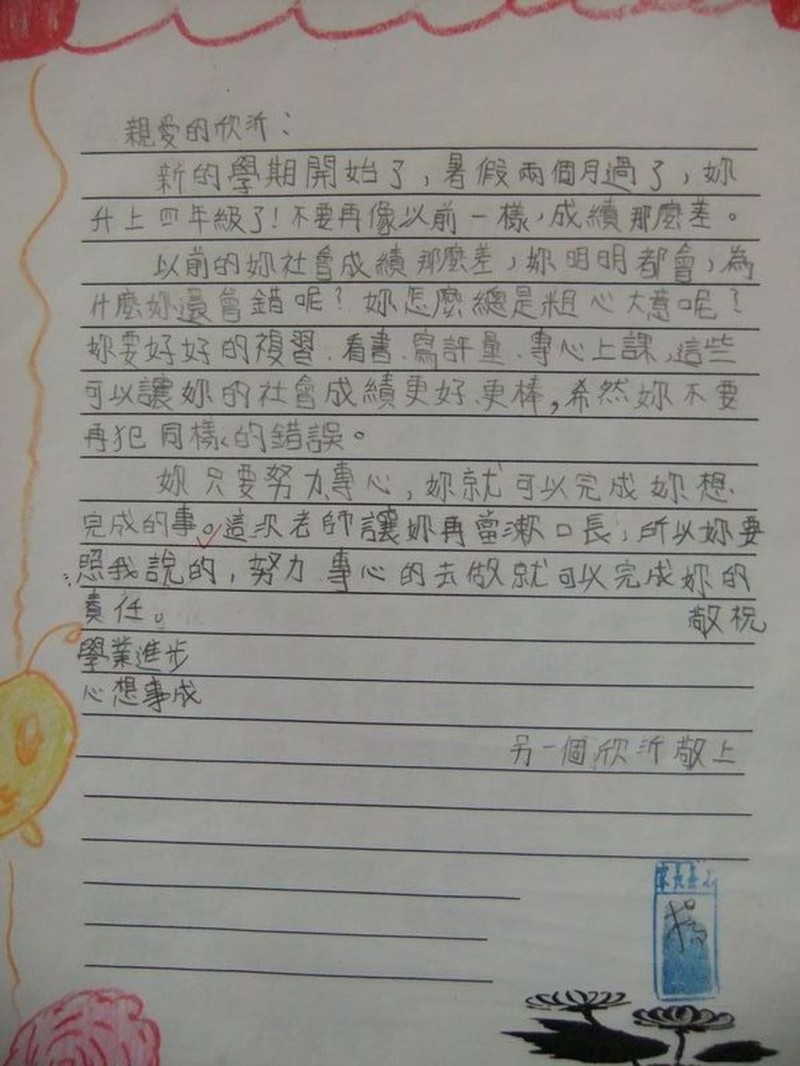 親愛的欣沂：
新的學期開始了，暑假兩個月過了，妳
升上四年級了！不要再像以前一樣，成績那麼差。
以前的妳社會成績那麼差，妳明明都會，為
什麼妳還會錯呢？妳怎麼總是粗心大意呢？
妳要好好的複習、看書、寫評量、專心上課，這些
可以讓妳的社會成績更好、更棒，希然妳不要
再犯同樣的錯誤。
妳只要努力、專心，妳就可以完成妳想
完成的事。這次老師讓妳再當漱口長，所以妳要
照我說的，努力、專心的去做就可以完成妳的
責任。 敬祝
學業進步
心想事成
另一個欣沂敬上